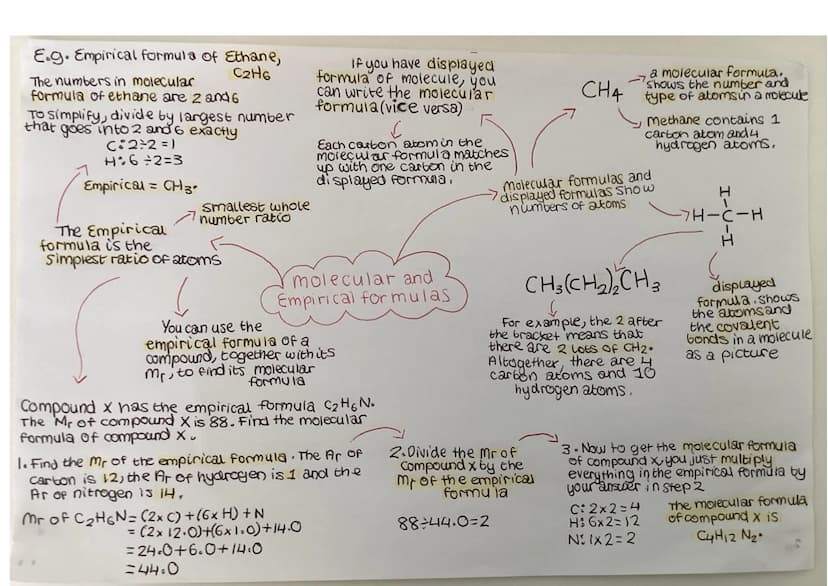 E.g. Empirical formula of Ethane,
C2H6
The numbers in molecular
formula of ethane are 2 and 6
To simplify, divide by largest number
that goes into 2 and 6 exactly
C: 2÷2 = 1
H: 6 ÷2=3
Empirical = CH3.
smallest whole
number ratio
The Empirical
formula is the
simplest ratio of atoms
You can use the
empirical formula of a
compound, together with its
Mr, to find its molecular
formula
If you have displayed
formula of molecule, you
can write the molecular
formula (vice versa)
Each carbon atom in the
molecular formula matches
up with one carbon in the
displayed formula.
CH4
a molecular formula.
shows the number and
type of atoms in a molecule
Methane contains 1
carbon atom and 4
hydrogen atoms.
molecular formulas and
displayed formulas show
numbers of atoms
H
H-C-H
H
displayed
formula. shows
the atoms and
the covalent
bonds in a molecule
as a picture
CH3(CH2)2CH3
For example, the 2 after
the bracket means that
there are 2 lots of CH2.
Altogether, there are 4
carbon atoms and 10
hydrogen atoms.
molecular and
Empirical formulas
Compound X has the empirical formula C2H6N.
The Mr of compound X is 88. Find the molecular
formula of compound X.
1. Find the Mr of the empirical formula. The Ar of
carbon is 12, the Ar of hydrogen is 1 and the
Ar of nitrogen is 14.
Mr of C2H6N = (2xC)+(6xH)+N
= (2x 12.0)+(6x1.0)+14.0
= 24.0+6.0+14.0
= 44.0
2. Divide the Mr of
compound x by the
Mr of the empirical
formula
88÷44.0=2
3. Now to get the molecular formula
of compound x, you just multiply
everything in the empirical formula by
your answer in step 2
C: 2x2=4
H: 6x2=12
N: 1x2=2
The molecular formula
of compound X is
C4H12N2.